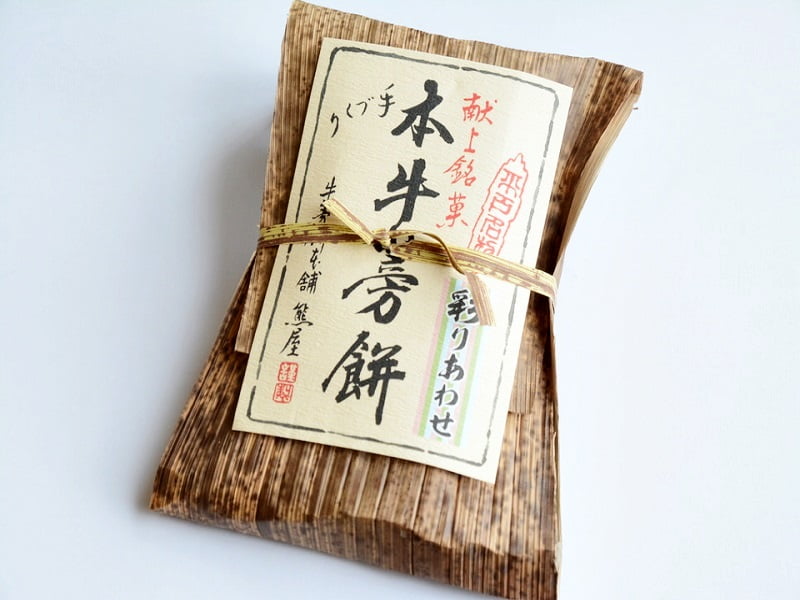 平戸名物
献上銘菓
彩りあわせ
本牛蒡餅
手づくり
牛蒡 本舗 熊屋
謹製